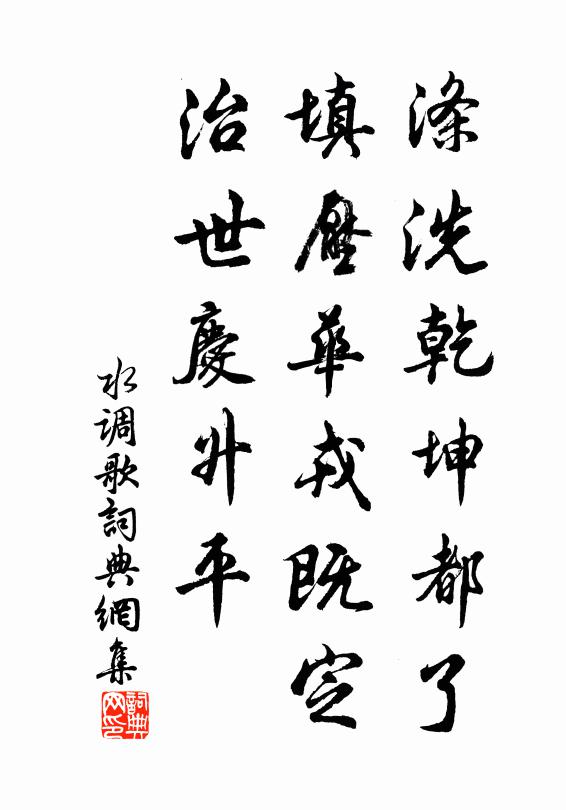 滌洗乾坤都了
填壓華戎既定
治世慶升平
水调歌詞典網集
詞典网印